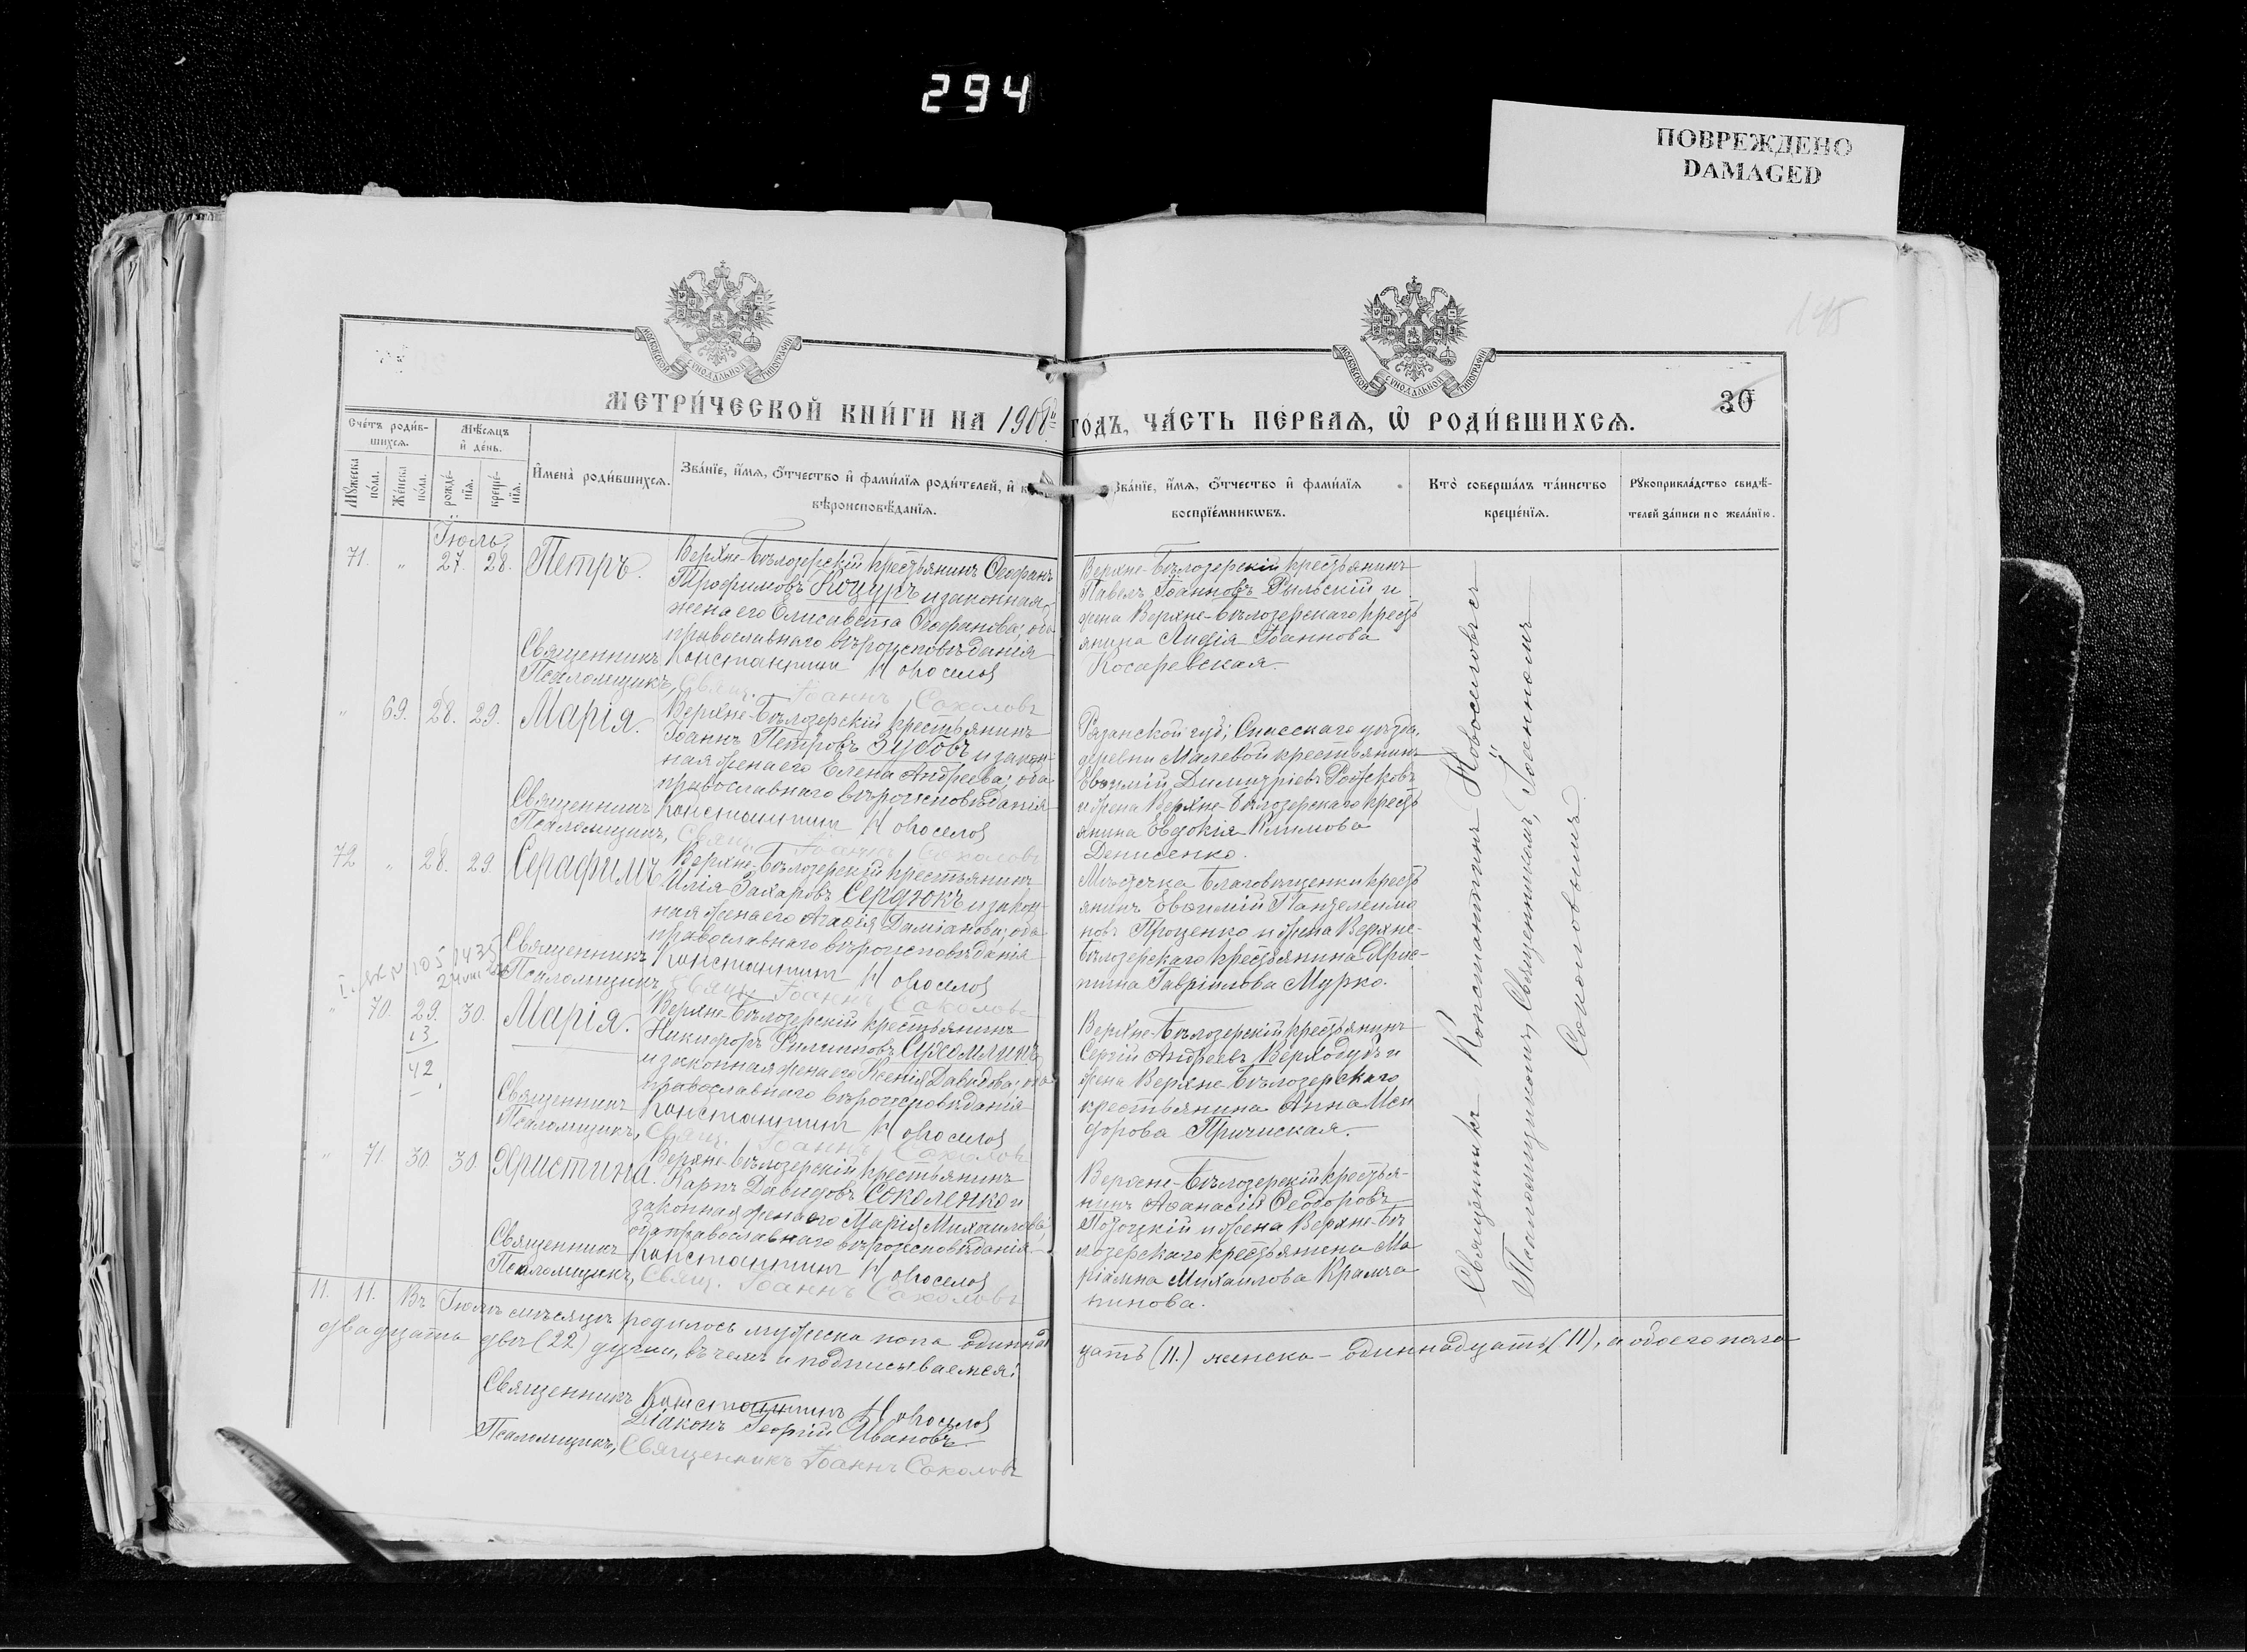 294
ПОВРЕЖДЕНО
DAMAGED
145
30
МОСКОВСКОЙ СѴНОДАЛЬНОЙ ТИПОГРАФІИ
МОСКОВСКОЙ СѴНОДАЛЬНОЙ ТИПОГРАФІИ
МЕТРИ́ЧЕСКОЙ КНИ́ГИ НА 1908й ГОДЪ, ЧА́СТЬ ПЕ́РВАѦ, Ѡ҆ РОДИ́ВШИХСѦ.
Сче́тъ роди́вшихсѧ.
Мꙋ́жеска по́ла.
Же́нска по́ла.
Мѣ́сѧцъ и҆ де́нь.
рожде́нїѧ.
креще́нїѧ.
И҆мена̀ роди́вшихсѧ.
Зва́нїе, и҆́мѧ, ѻ҆́тчество и҆ фами́лїѧ роди́телей, и҆ к
вѣроисповѣ́данїѧ.
Зва́нїе, и҆́мѧ, ѻ҆́тчество и҆ фами́лїѧ
воспрїе́мникѡвъ.
Кто̀ соверша́лъ та́инство
креще́нїѧ.
Рꙋкоприкла́дство свидѣ́-
телей за́писи по жела́нїю.
Іюль
71. " 27. 28. Петръ.
Верхне-Бѣлозерскій крестьянинъ Ѳеофанъ
Трофимовъ Коцуръ и законная
жена его Елисавета Ѳеофанова; оба
православнаго вѣроисповѣданія
Священникъ Константинъ Новоселов
Псаломщикъ, Свящ. Іоаннъ Соколовъ
Верхне-Бѣлозерскій крестьянинъ
Павелъ Іоанновъ Рыльскій и
жена Верхне-Бѣлозерскаго крест
янина Лидія Іоаннова
Косаревская.
" 69. 28. 29. Марія.
Верхне-Бѣлозерскій крестьянинъ
Іоаннъ Петровъ Зубовъ и закон-
ная жена его Елена Андреева; оба
православнаго вѣроисповѣданія
Священникъ Константинъ Новоселов
Псаломщикъ, Свящ. Іоаннъ Соколовъ
Рязанской губ; Спасскаго уѣзда,
деревни Малевой крестьянинъ
Евѳимій Димитріевъ Рожковъ
и жена Верхне-Бѣлозерскаго крест
янина Евдокія Климова
Денисенко.
72 " 28. 29. Серафимъ
Верхне-Бѣлозерскій крестьянинъ
Илія Захаровъ Сердюкъ и закон-
ная жена его Агаѳія Даміанова; оба
православнаго вѣроисповѣданія
Священникъ Константинъ Новоселов
Псаломщикъ, Свящ. Іоаннъ Соколовъ
Мѣстечка Благовѣщенки крест
янинъ Евѳимій Пантелеимо
новъ Проценко и жена Верхне-
Бѣлозерскаго крестьянина Хрис-
тина Гавріилова Мурко.
" 70. 29. 30. Марія.
13
42
Верхне-Бѣлозерскій крестьянинъ
Никифоръ Филипповъ Сухомлинъ
и законная жена его Ксенія Давидова; оба
православнаго вѣроисповѣданія
Священникъ Константинъ Новоселов
Псаломщикъ, Свящ. Іоаннъ Соколовъ
Верхне-Бѣлозерскій крестьянинъ
Сергій Андреевъ Верходубъ и
жена Верхне-Бѣлозерскаго
крестьянина Анна Иси
дорова Причиская.
" 71. 30 30. Христина.
Верхне-Бѣлозерскій крестьянинъ
Карпъ Давидовъ Соколенко и
законная жена его Марія Михаилова;
оба православнаго вѣроисповѣданія
Священникъ Константинъ Новоселов
Псаломщикъ, Свящ. Іоаннъ Соколовъ
Верхне-Бѣлозерскій крестья-
нинъ Аѳанасій Ѳеодоровъ
Потоцкій и жена Верхне-Бѣ
лозерскаго крестьянина Ма
ріамна Михаилова Крамча
нинова.
Священникъ Константинъ Новоселовъ съ
Псаломщикомъ, Священникомъ, Іоанномъ
Соколовымъ.
11. 11. Въ Іюлѣ мѣсяцѣ родилось мужеска пола одиннад
цать (11.) женска - одиннадцать (11), а обоего пола
двадцать двѣ (22) души, въ чемъ и подписываемся:
Священникъ Константинъ Новоселов
Діаконъ Георгій Ивановъ
Псаломщикъ, Священникъ Іоаннъ Соколовъ